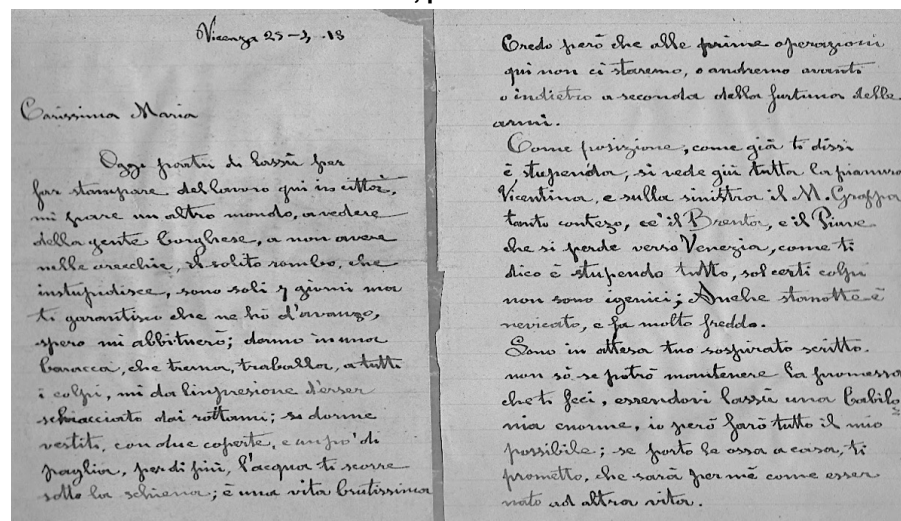 Vicenza 25-2, .18
Carissima Maria
Oggi partii di lassù per
far stampare del lavoro qui in città,
mi pare un altro mondo, a vedere
della gente borghese, a non avere
nelle orecchie, il solito rombo, che
instupidisce, sono soli 7 giorni ma
ti garantisco che ne hò d'avanzo,
spero mi abbituerò; dormo in una
baracca, che trema, traballa, a tutti
i colpi, mi da l'impresione d'esser
schiacciato dai rottami; si dorme
vestiti, con due coperte, e un pò' di
paglia, per di più, l'acqua ti scorre
sotto la schiena; è una vita bruttissima
Credo però che alle prime operazioni
qui non ci staremo, o andremo avanti
o indietro a seconda della fortuna delle
armi.
Come posizione, come già ti dissi
è stupenda, si vede giù tutta la pianura
Vicentina, e sulla sinistra il M. Grappa
tanto conteso, ce' il Brenta, e il Piave
che si perde verso Venezia, come ti
dico è stupendo tutto, sol certi colpi
non sono igenici; Anche stanotte è
nevicato, e fa molto freddo.
Sono in attesa tuo sospirato scritto.
non sò se potrò mantenere la promessa
che ti feci, essendovi lassù una Babilo
nia enorme, io però farò tutto il mio
possibile; se porto le ossa a casa, ti
prometto, che sarà per mè come esser
nato ad altra vita.